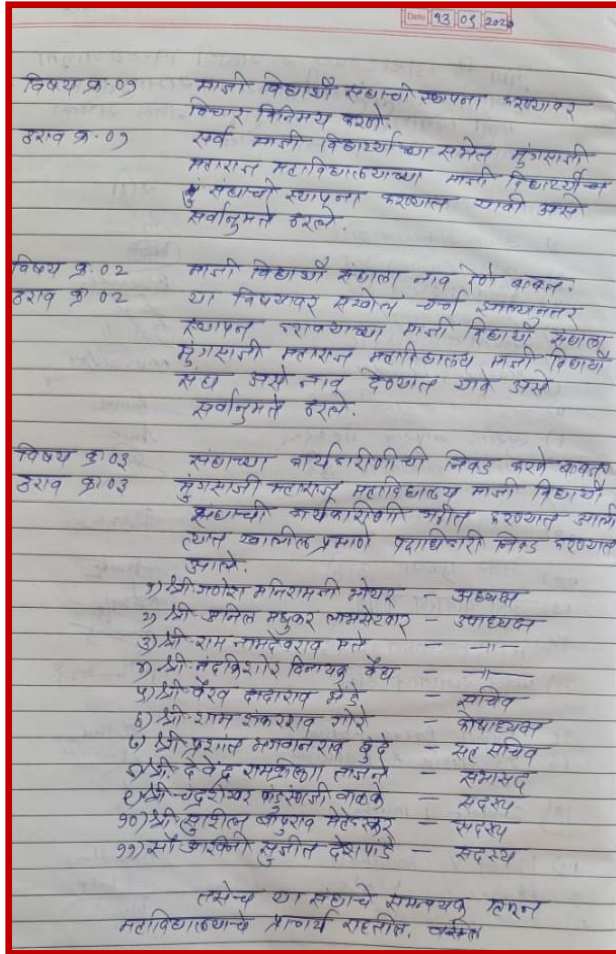 Date 13 05 2020
विषय क्र.०१ माजी विद्यार्थी संघाची स्थापना करण्यावर
विचार विनिमय करणे.
ठराव क्र.०१ सर्व माजी विद्यार्थ्यांच्या सभेत मुंगसाजी
महाराज महाविद्यालयाच्या माजी विद्यार्थ्यांच्या
संघाची स्थापना करण्यात यावी असे
सर्वानुमते ठरले.
विषय क्र.०२ माजी विद्यार्थी संघाला नाव देणे बाबत.
ठराव क्र ०२ या विषयावर सखोल चर्चा झाल्यानंतर
स्थापन करावयाच्या माजी विद्यार्थी संघाला
मुंगसाजी महाराज महाविद्यालय माजी विद्यार्थी
संघ असे नाव देण्यात यावे असे
सर्वानुमते ठरले.
विषय क्र.०३ संघाच्या कार्यकारीणीची निवड करणे बाबत
ठराव क्र.०३ मुंगसाजी महाराज महाविद्यालय माजी विद्यार्थी
संघाची कार्यकारीणी गठीत करण्यात आली
त्यात खालील प्रमाणे पदाधिकारी निवड करण्यात
आले.
१) श्री.गणेश मनिरामजी भोयर – अध्यक्ष
२) श्री.अनिल मधुकर – उपाध्यक्ष
३) श्री.राम नामदेवराव मते – –॥–
४) श्री.नंदकिशोर विनायक वैद्य – –॥–
५) श्री.वैभव दादाराव – सचिव
६) श्री.शाम शंकरराव गोरे – कोषाध्यक्ष
७) श्री.प्रशांत भगवानराव – सह सचिव
८) श्री.देवेंद्र रामकृष्ण ताजने – सभासद
९) श्री.चंद्रशेखर पांडुरंगजी वाळके – सदस्य
१०) श्री.सुशिल बापुराव – सदस्य
११) सौ.अश्विनी सुजीत देशपांडे – सदस्य
तसेच या संघाचे समन्वयक म्हणून
महाविद्यालयाचे प्राचार्य राहतील.